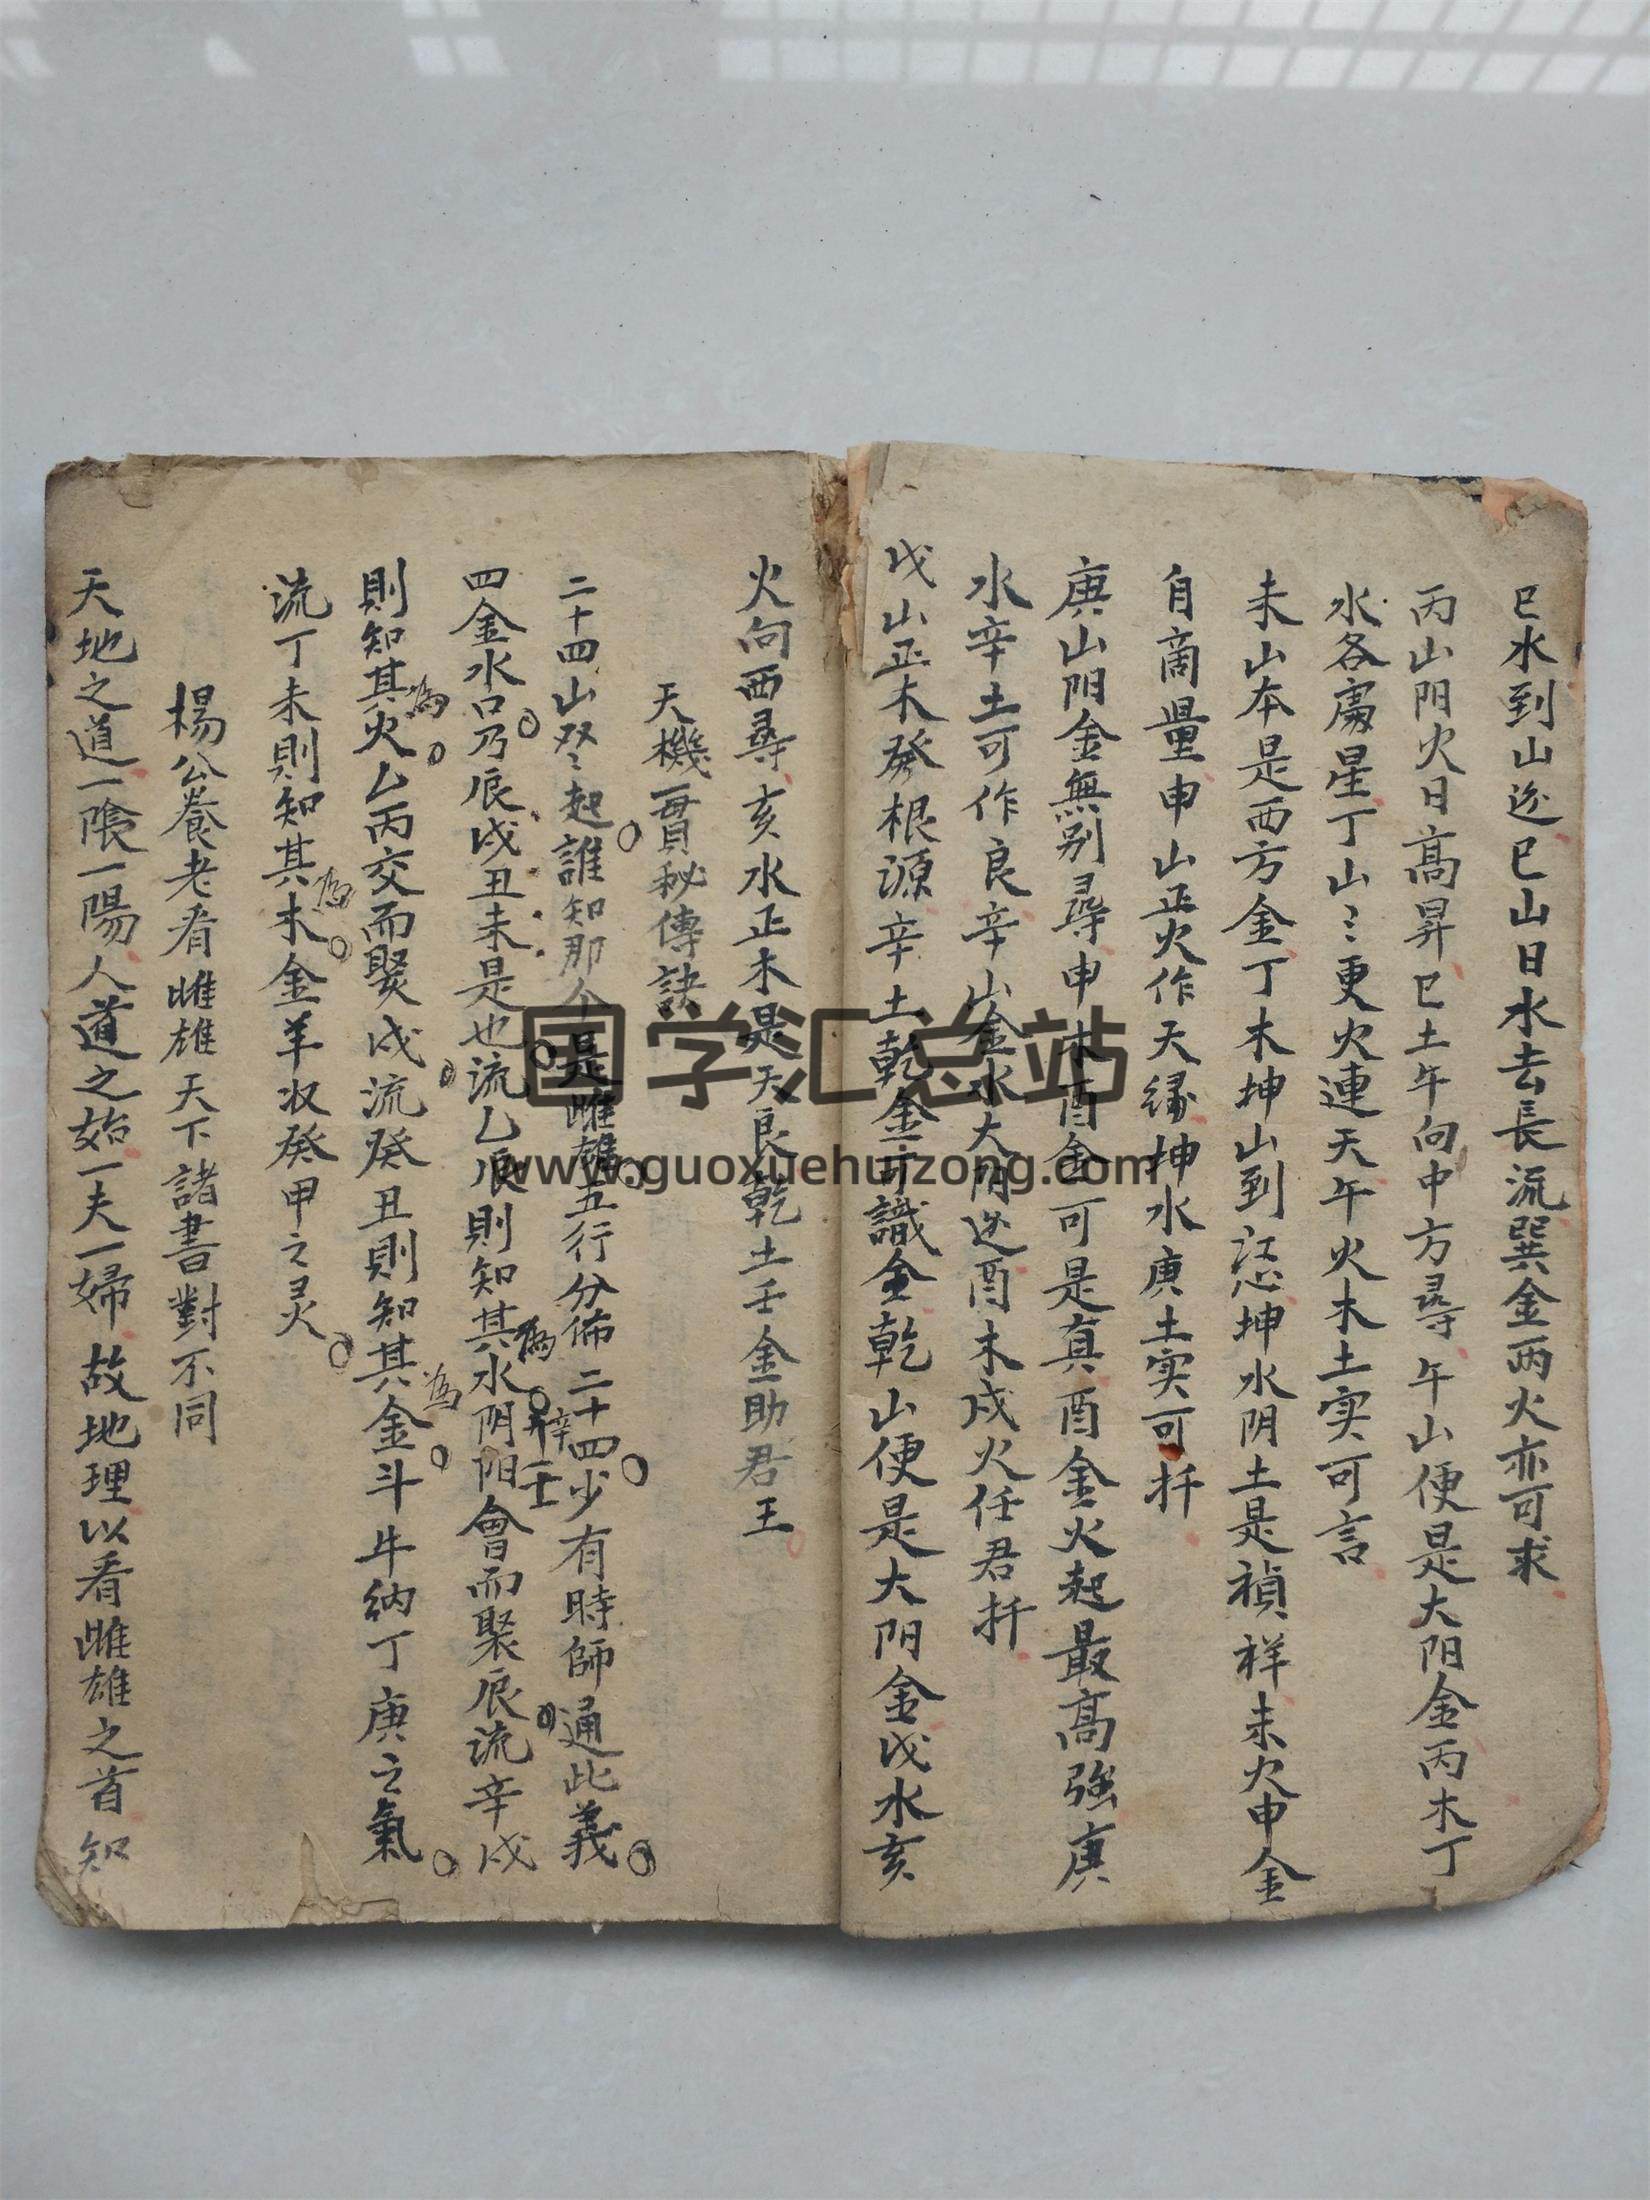 巳水到山边巳山日水去長流巽金丙火亦可求
丙山阳火日髙昇巳土午向中方尋午山便是大阳金丙木丁
水各属星丁山〻更火連天午火木土实可言
未山本是西方金丁木坤山到 坤水阴土是禎祥未火申金
自啇量申山正火作天缘坤水庚土实可扦
庚山阳金無别尋申木酉金可是真酉金火起最髙強庚
水辛土可作良辛山金水大阴边酉木戍火任君扦
戍山正木癸根源辛土乾金可識金乾山便是大阳金戍水亥
火向西尋亥水正木是天良乾土壬金助君王
天機一貫秘傳訣
二十四山双〻起誰知那个是雌雄五行分佈二十四少有時師通此義
四金水口乃辰戍丑未是也流乙辰則知其為水阴阳會而聚辰流辛戍
昇辛壬
則知其為火乙丙交而聚戍流癸丑則知其為金斗牛纳丁庚之氣
流丁未則知其為木金羊収癸甲之灵
楊公養老看雌雄天下諸書對不同
天地之道一陰一陽人道之始一夫一婦故地理以看雌雄之首知
国学汇总站
www.guoxuehuizong.com